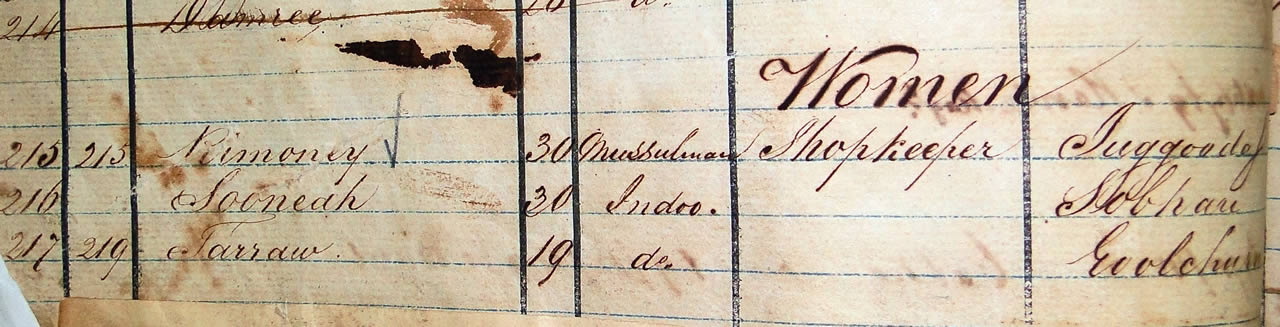 214 Damree
Women
215 215 Nimoney 30 Mussulman Shopkeeper
216 Sooneah 30 Indoo. Sobhan
217 219 Tarraw 19 do.